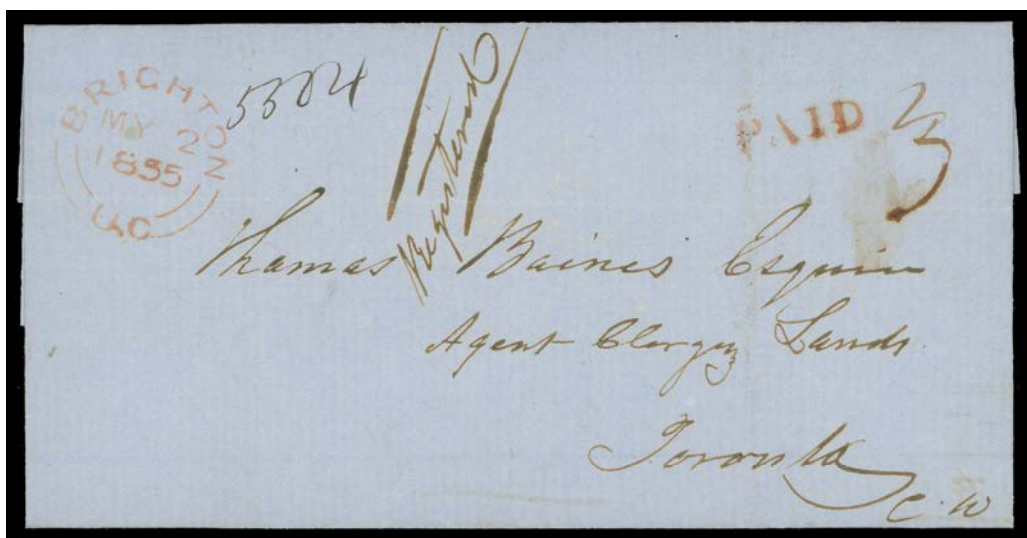 BRIGHTON
MY 20
1855
U.C.
5304
Registered
PAID 3
Thomas Baines Esquire
Agent Clergy Lands
Toronto
C. W